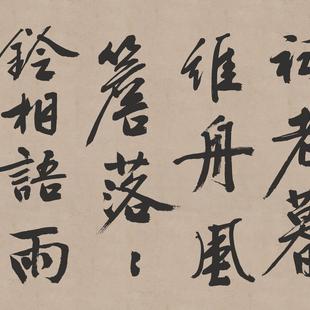 老暮
維舟風
簷落〻
鈴相語雨